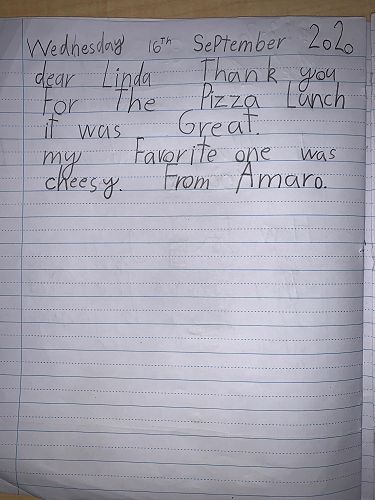 Wednesday 16th September 2020
dear Linda Thank you
For The Pizza Lunch
it was Great.
my Favorite one was
cheesy. From Amaro.